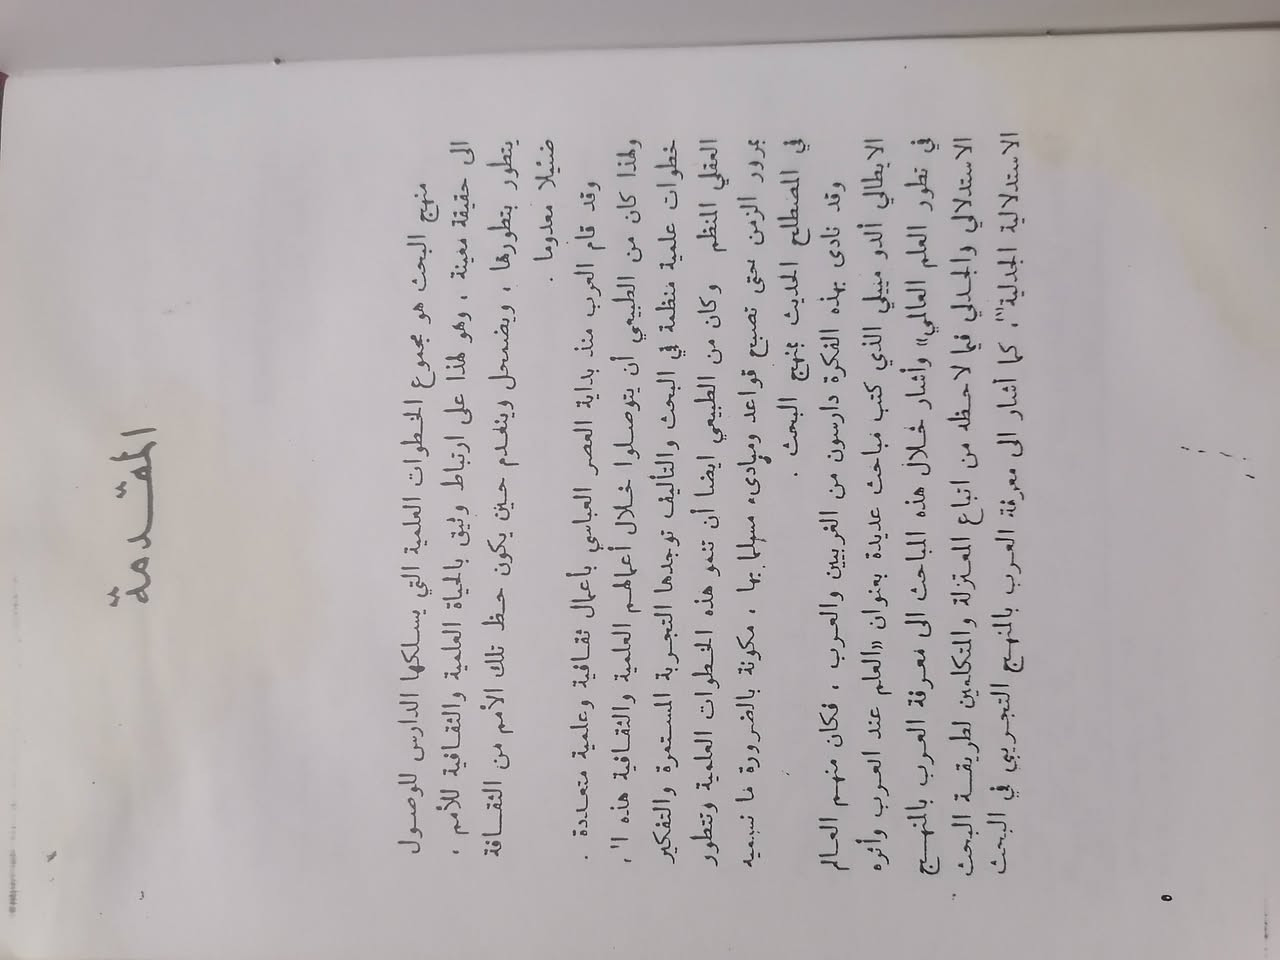 المقدمة
منهج البحث هو مجموع الخطوات العلمية التي يسلكها الدارس للوصول
الى حقيقة معينة ، وهو لهذا على ارتباط وثيق بالحياة العلمية والثقافية للأمم ،
يتطور بتطورها ، ويضمحل وينعدم حين يكون حظ تلك الأمم من الثقافة
ضئيلا معدوما .
وقد قام العرب منذ بداية العصر العباسي بأعمال ثقافية وعلمية متعددة .
ولهذا كان من الطبيعي أن يتوصلوا خلال أعمالهم العلمية والثقافية هذه الى
خطوات علمية منظمة في البحث والتأليف توجدها التجربة المستمرة والتفكير
العقلي المنظم وكان من الطبيعي ايضا أن تنمو هذه الخطوات العلمية وتتطور
بمرور الزمن حتى تصبح قواعد ومبادىء مسلما بها ، مكونة بالضرورة ما نسميه
في المصطلح الحديث بمنهج البحث .
وقد نادى بهذه الفكرة دارسون من الغربيين والعرب ، فكان منهم العالم
الايطالي ألدو مييلي الذي كتب مباحث عديدة بعنوان «العلم عند العرب وأثره
في تطور العلم العالمي» وأشار خلال هذه المباحث الى معرفة العرب بالمنهج
الاستدلالي والجدلي فيما لاحظه من اتباع المعتزلة والمتكلمين لطريقة البحث
الاستدلالية الجدلية(١)، كما أشار الى معرفة العرب بالمنهج التجريبي في البحث
٥